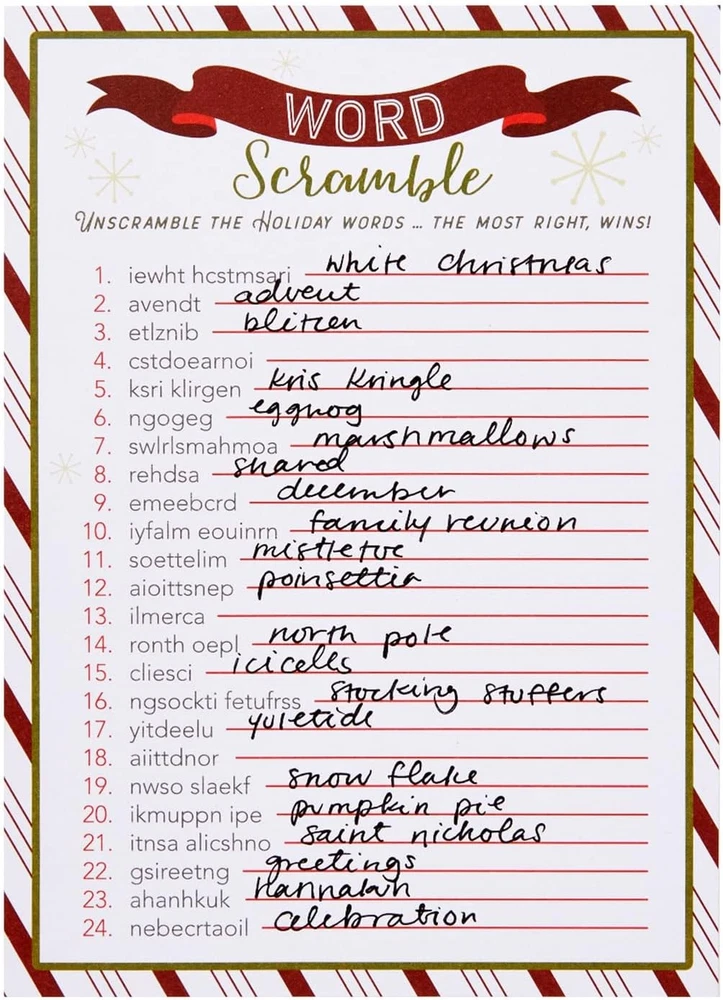 WORD
Scramble
UNSCRAMBLE THE HOLIDAY WORDS ... THE MOST RIGHT, WINS!
1. iewht hcstmsari white christmas
2. avendt advent
3. etlznib blitzen
4. cstdoearnoi
5. ksri klirgen kris kringle
6. ngogeg eggnog
7. swlrlsmahmoa marshmallows
8. rehdsa shared
9. emeebcrd december
10. iyfalm eouinrn family reunion
11. soettelim mistletoe
12. aioittsnep poinsettia
13. ilmerca
14. ronth oepl north pole
15. cliesci icicells
16. ngsockti fetufrss stocking stuffers
17. yitdeelu yuletide
18. aiittdnor
19. nwso slaekf snow flake
20. ikmuppn ipe pumpkin pie
21. itnsa alicshno saint nicholas
22. gsireetng greetings
23. ahanhkuk
24. nebecrtaoil celebration